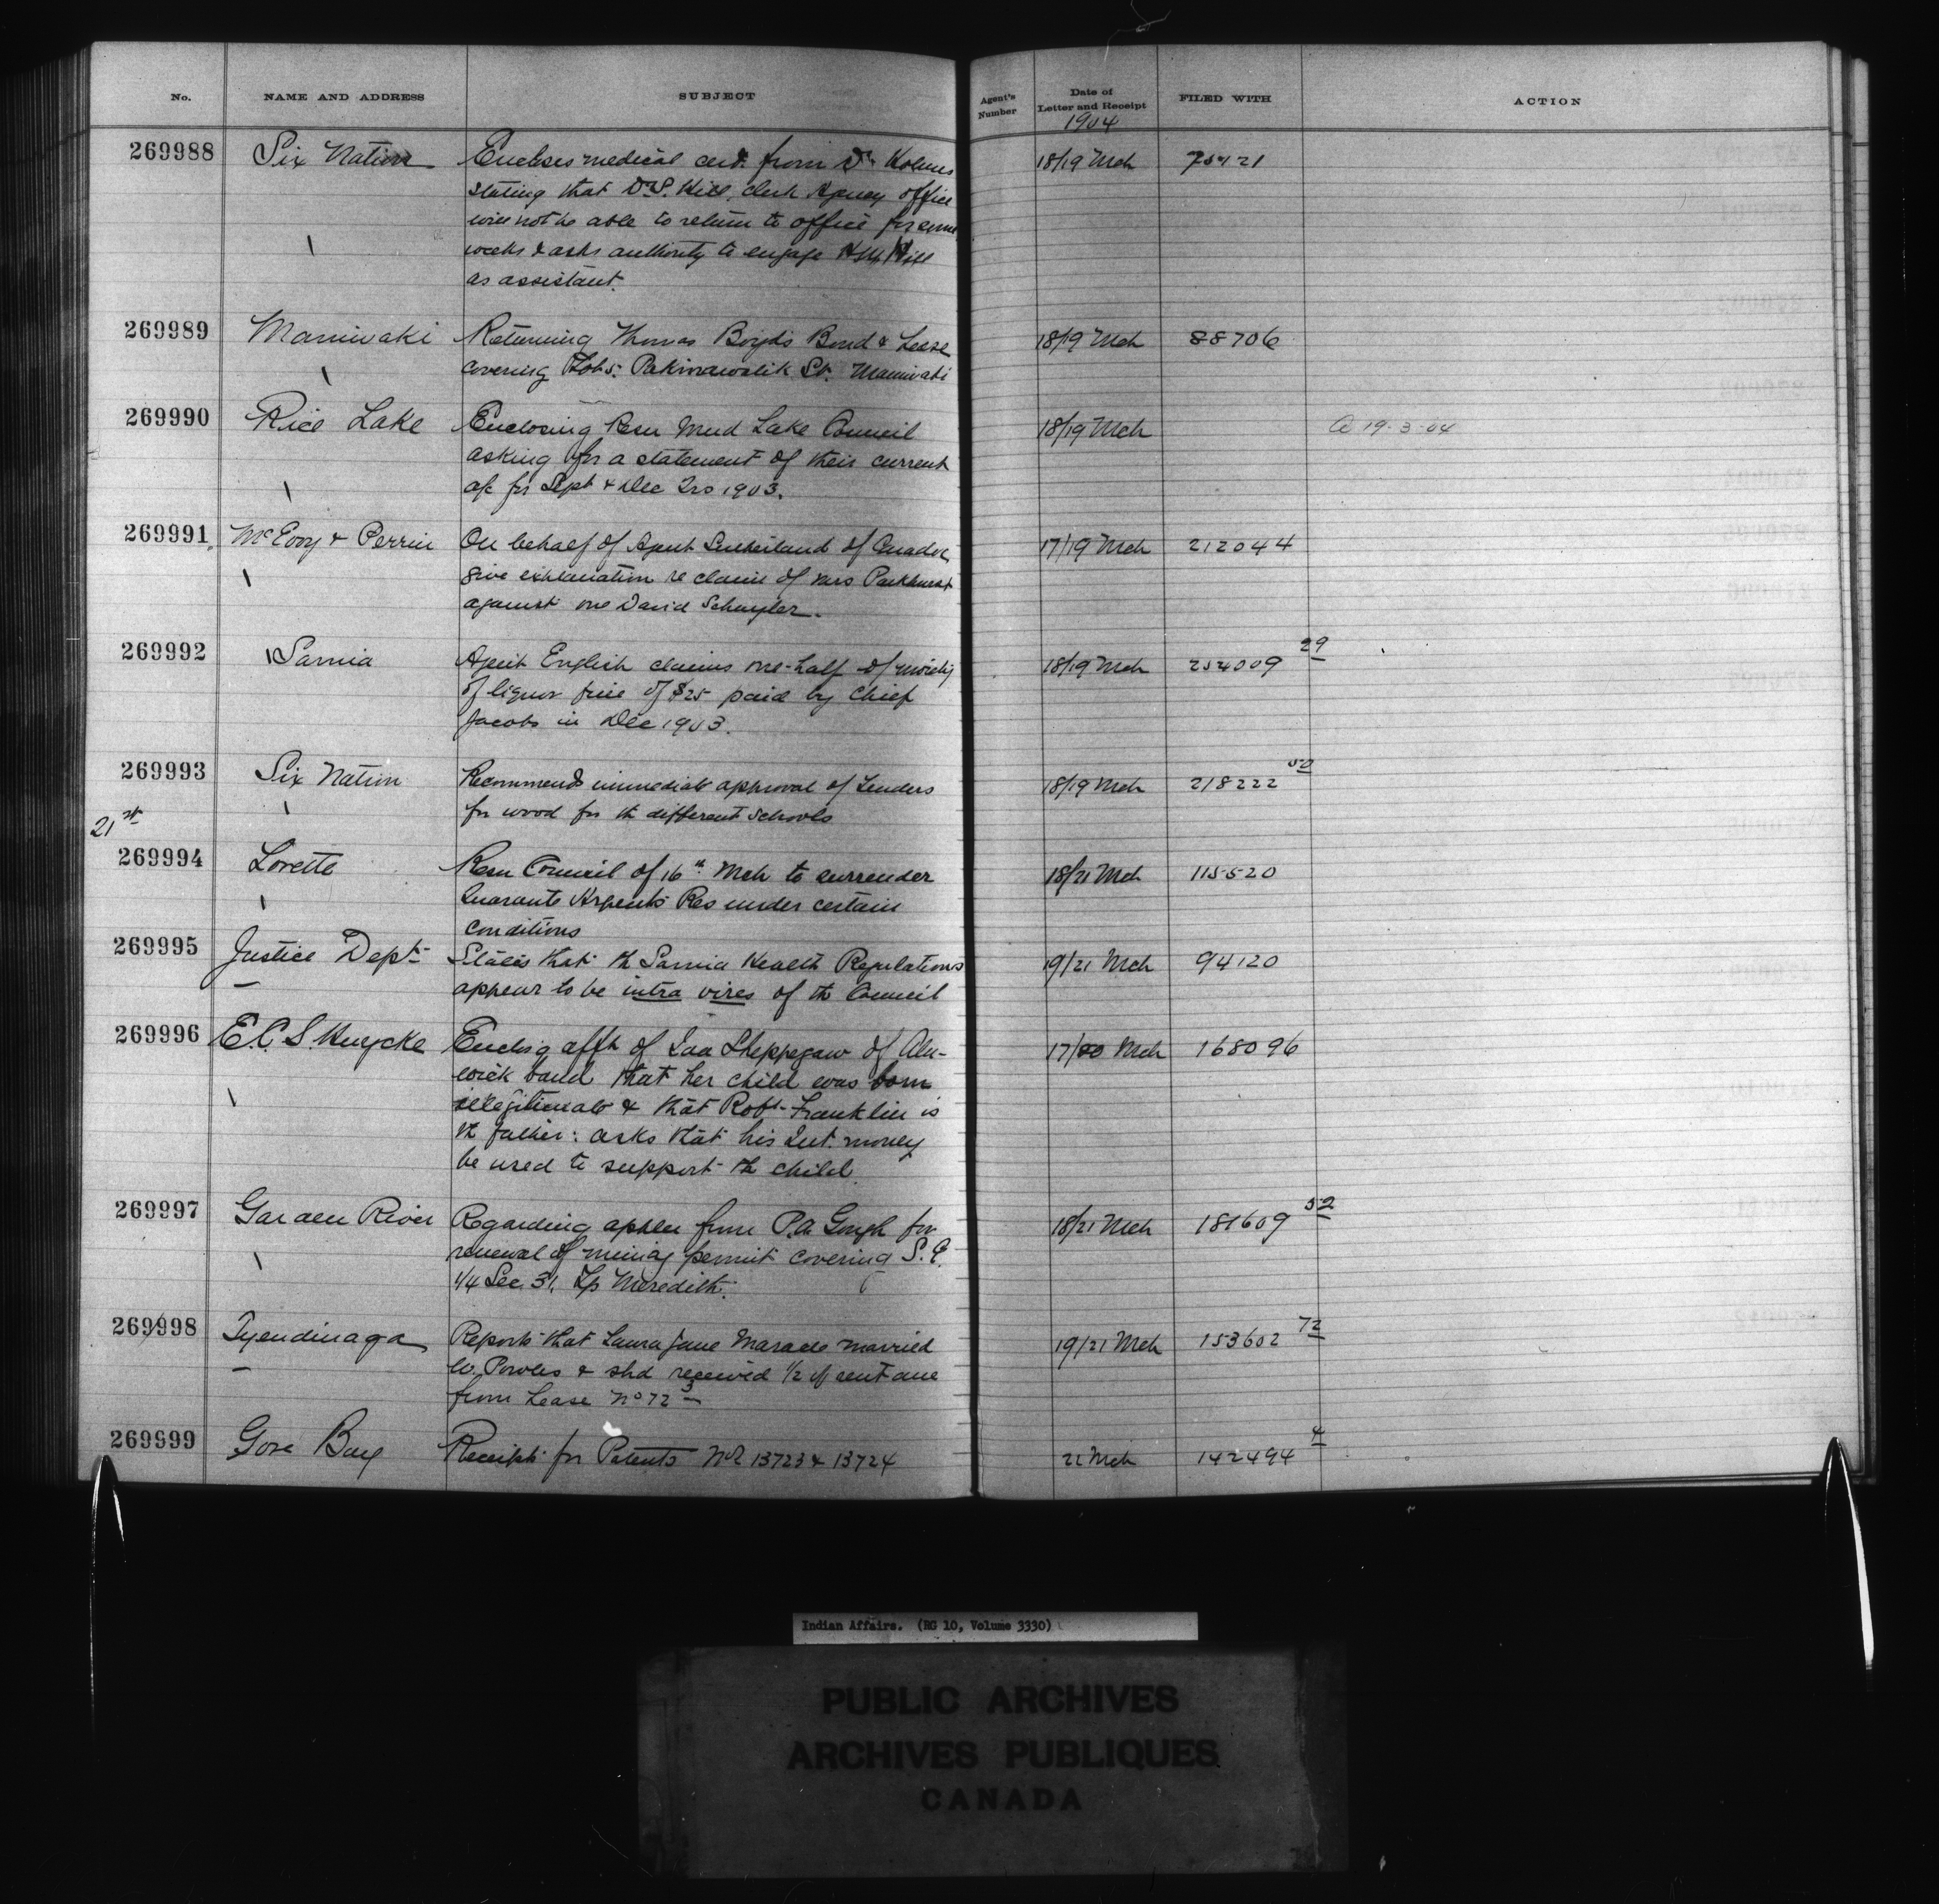 No. NAME AND ADDRESS SUBJECT Agent's Number Date of Letter and Receipt FILED WITH ACTION
1904
269988 Six Nation Encloses medical cert. from Dr Holmes 18/19 Mch 75421
stating that D.S. Hill, clerk Agency office
will not be able to return to office for some
weeks & asks authority to engage H.M. Hill
as assistant.
269989 Maniwaki Returning Thomas Boyd's Bond & Lease 18/19 Mch 88706
covering Lot 5. St. Maniwaki
269990 Rice Lake Enclosing Resn Mud Lake Council 18/19 Mch A 19-3-04
asking for a statement of their current
a/c for Sept & Dec 1903.
269991 McEvoy & Perrin On behalf of Agent Sutherland of Caradoc 17/19 Mch 212044
give explanation re claim of Mrs Parkhurst
against one David Schuyler.
269992 Sarnia Agent English claims one-half of moiety 18/19 Mch 254009 29
of liquor fine of $25 paid by Chief
Jacobs in Dec 1903.
269993 Six Nation Recommends immediate approval of Tenders 18/19 Mch 218222 50
for wood for th different Schools
21st
269994 Lorette Resn Council of 16th Mch to surrender 18/21 Mch 115520
Quarante Arpents Res under certain
conditions
269995 Justice Dept States that th Sarnia Health Regulations 19/21 Mch 94120
appear to be intra vires of th Council
269996 E.C.S. Huycke Enclsg afft of Ida Sheppegaw of Aln- 17/20 Mch 168096
wick band that her child was born
illegitimate & that Robt. Franklin is
th father: asks that his Int. money
be used to support th child.
269997 Garden River Regarding appln from P.A. Gough for 18/21 Mch 181609 52
renewal of mining permit covering S.E.
1/4 Sec. 31, Tp Meredith.
269998 Tyendinaga Reports that Laura Jane Maracle married 19/21 Mch 153602 72
W. Powles & shd received 1/2 of rent due
from Lease No 72
269999 Gore Bay Receipts for Patents Nos 13723 & 13724 22 Mch 142494 4
Indian Affairs. (RG 10, Volume 3330)
PUBLIC ARCHIVES
ARCHIVES PUBLIQUES
CANADA